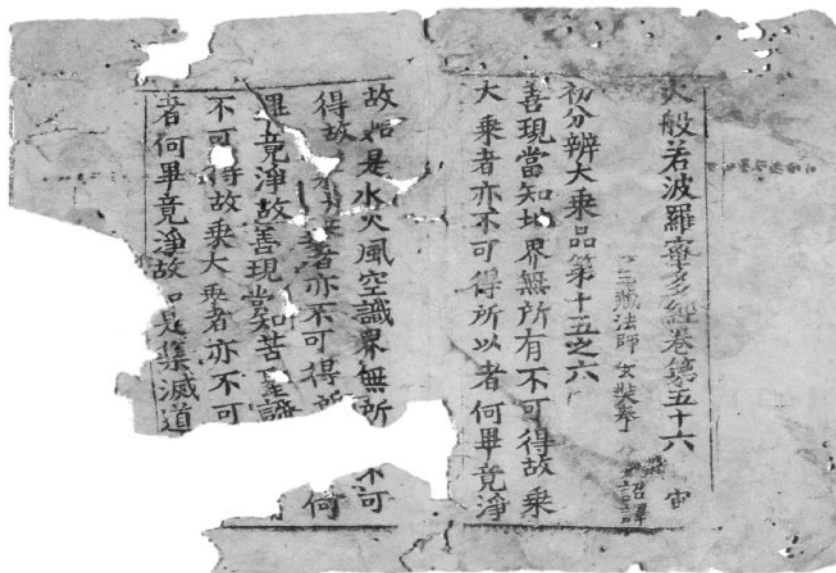 大般若波羅蜜多經卷第五十六 宙
三藏法師玄奘奉 詔譯
初分辨大乘品第十五之六
善現當知地界無所有不可得故乘
大乘者亦不可得所以者何畢竟淨
故如是水火風空識界無所 不可
得故 者亦不可得所 何
畢竟淨故善現當知苦聖諦
不可得故乘大乘者亦不可
者何畢竟淨故 是集滅道